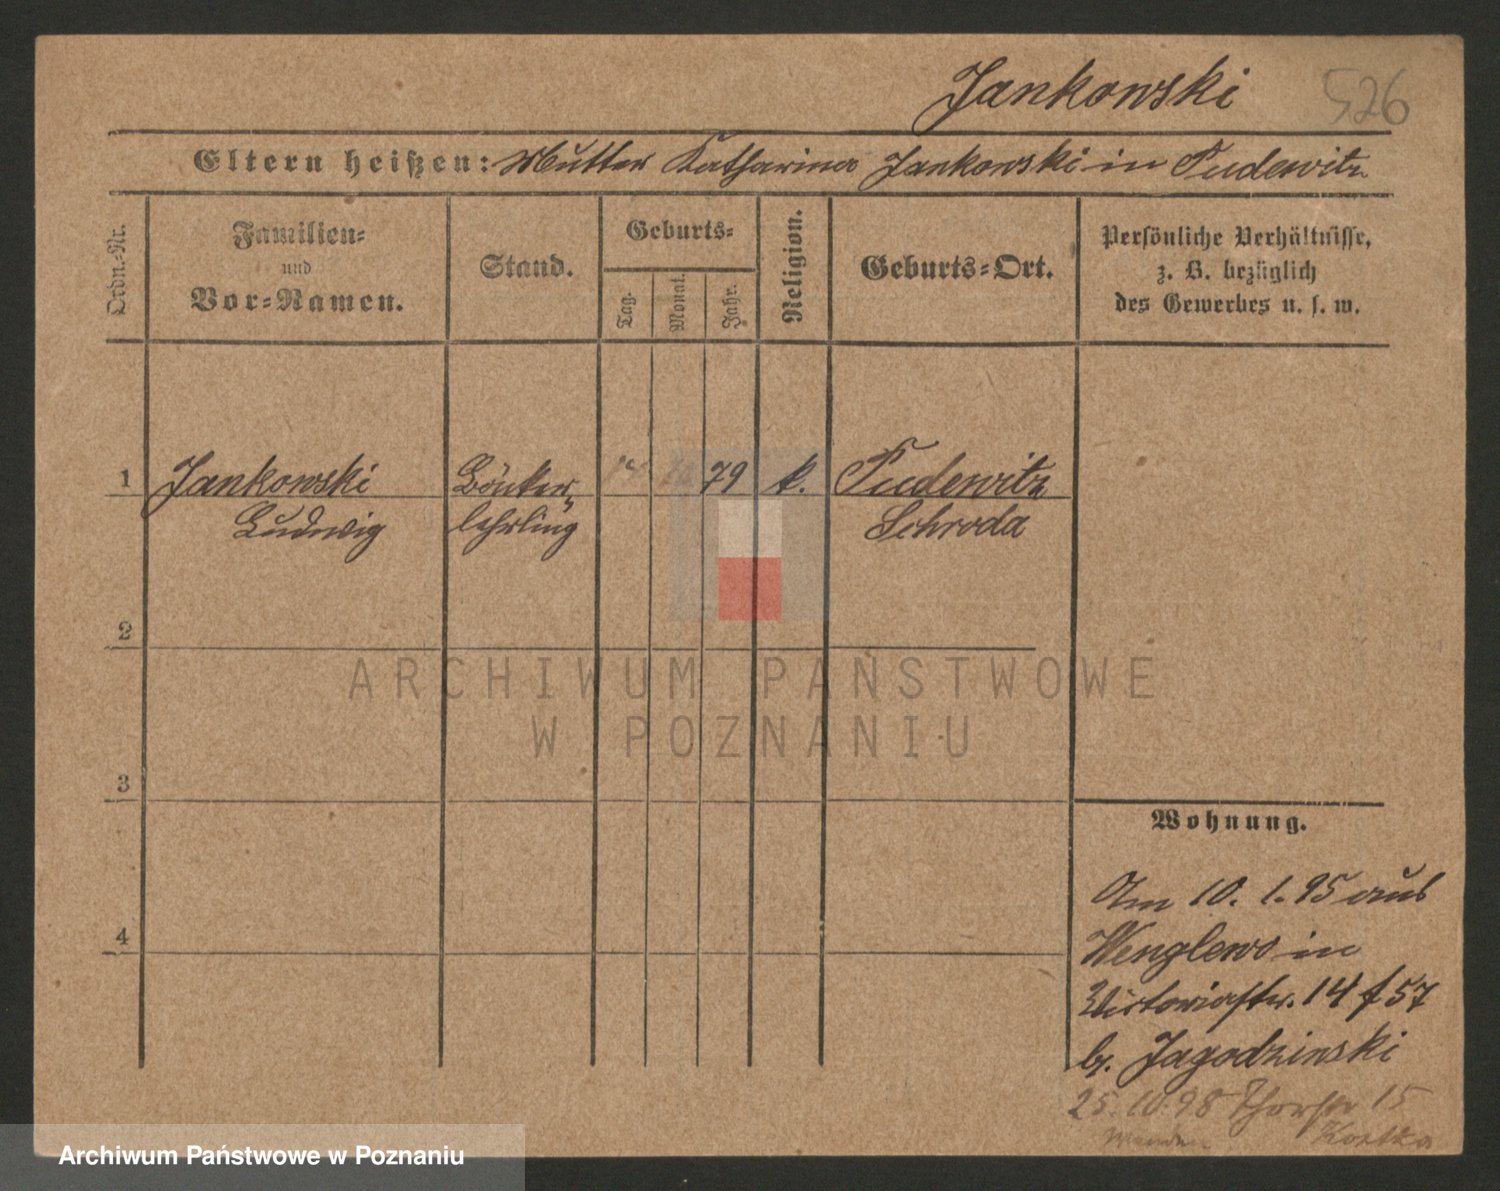 Jankowski 526
Eltern heißen: Mutter Katharina Jankowski in Pudewitz
Ordn.-Nr.
Familien-
und
Vor-Namen.
Stand.
Geburts-
Tag.
Monat.
Jahr.
Religion.
Geburts-Ort.
Persönliche Verhältnisse,
z. B. bezüglich
des Gewerbes u. s. w.
1 Jankowski 79 k. Pudewitz
Ludwig lehrling Schroda
2
3
4
Wohnung.
Am 10. 1. 95 aus
Wenglewo in
Victoriastr. 14 f 57
b. Jagodzinski
25. 10. 98 15
Kostka
ARCHIWUM PAŃSTWOWE
W POZNANIU
Archiwum Państwowe w Poznaniu